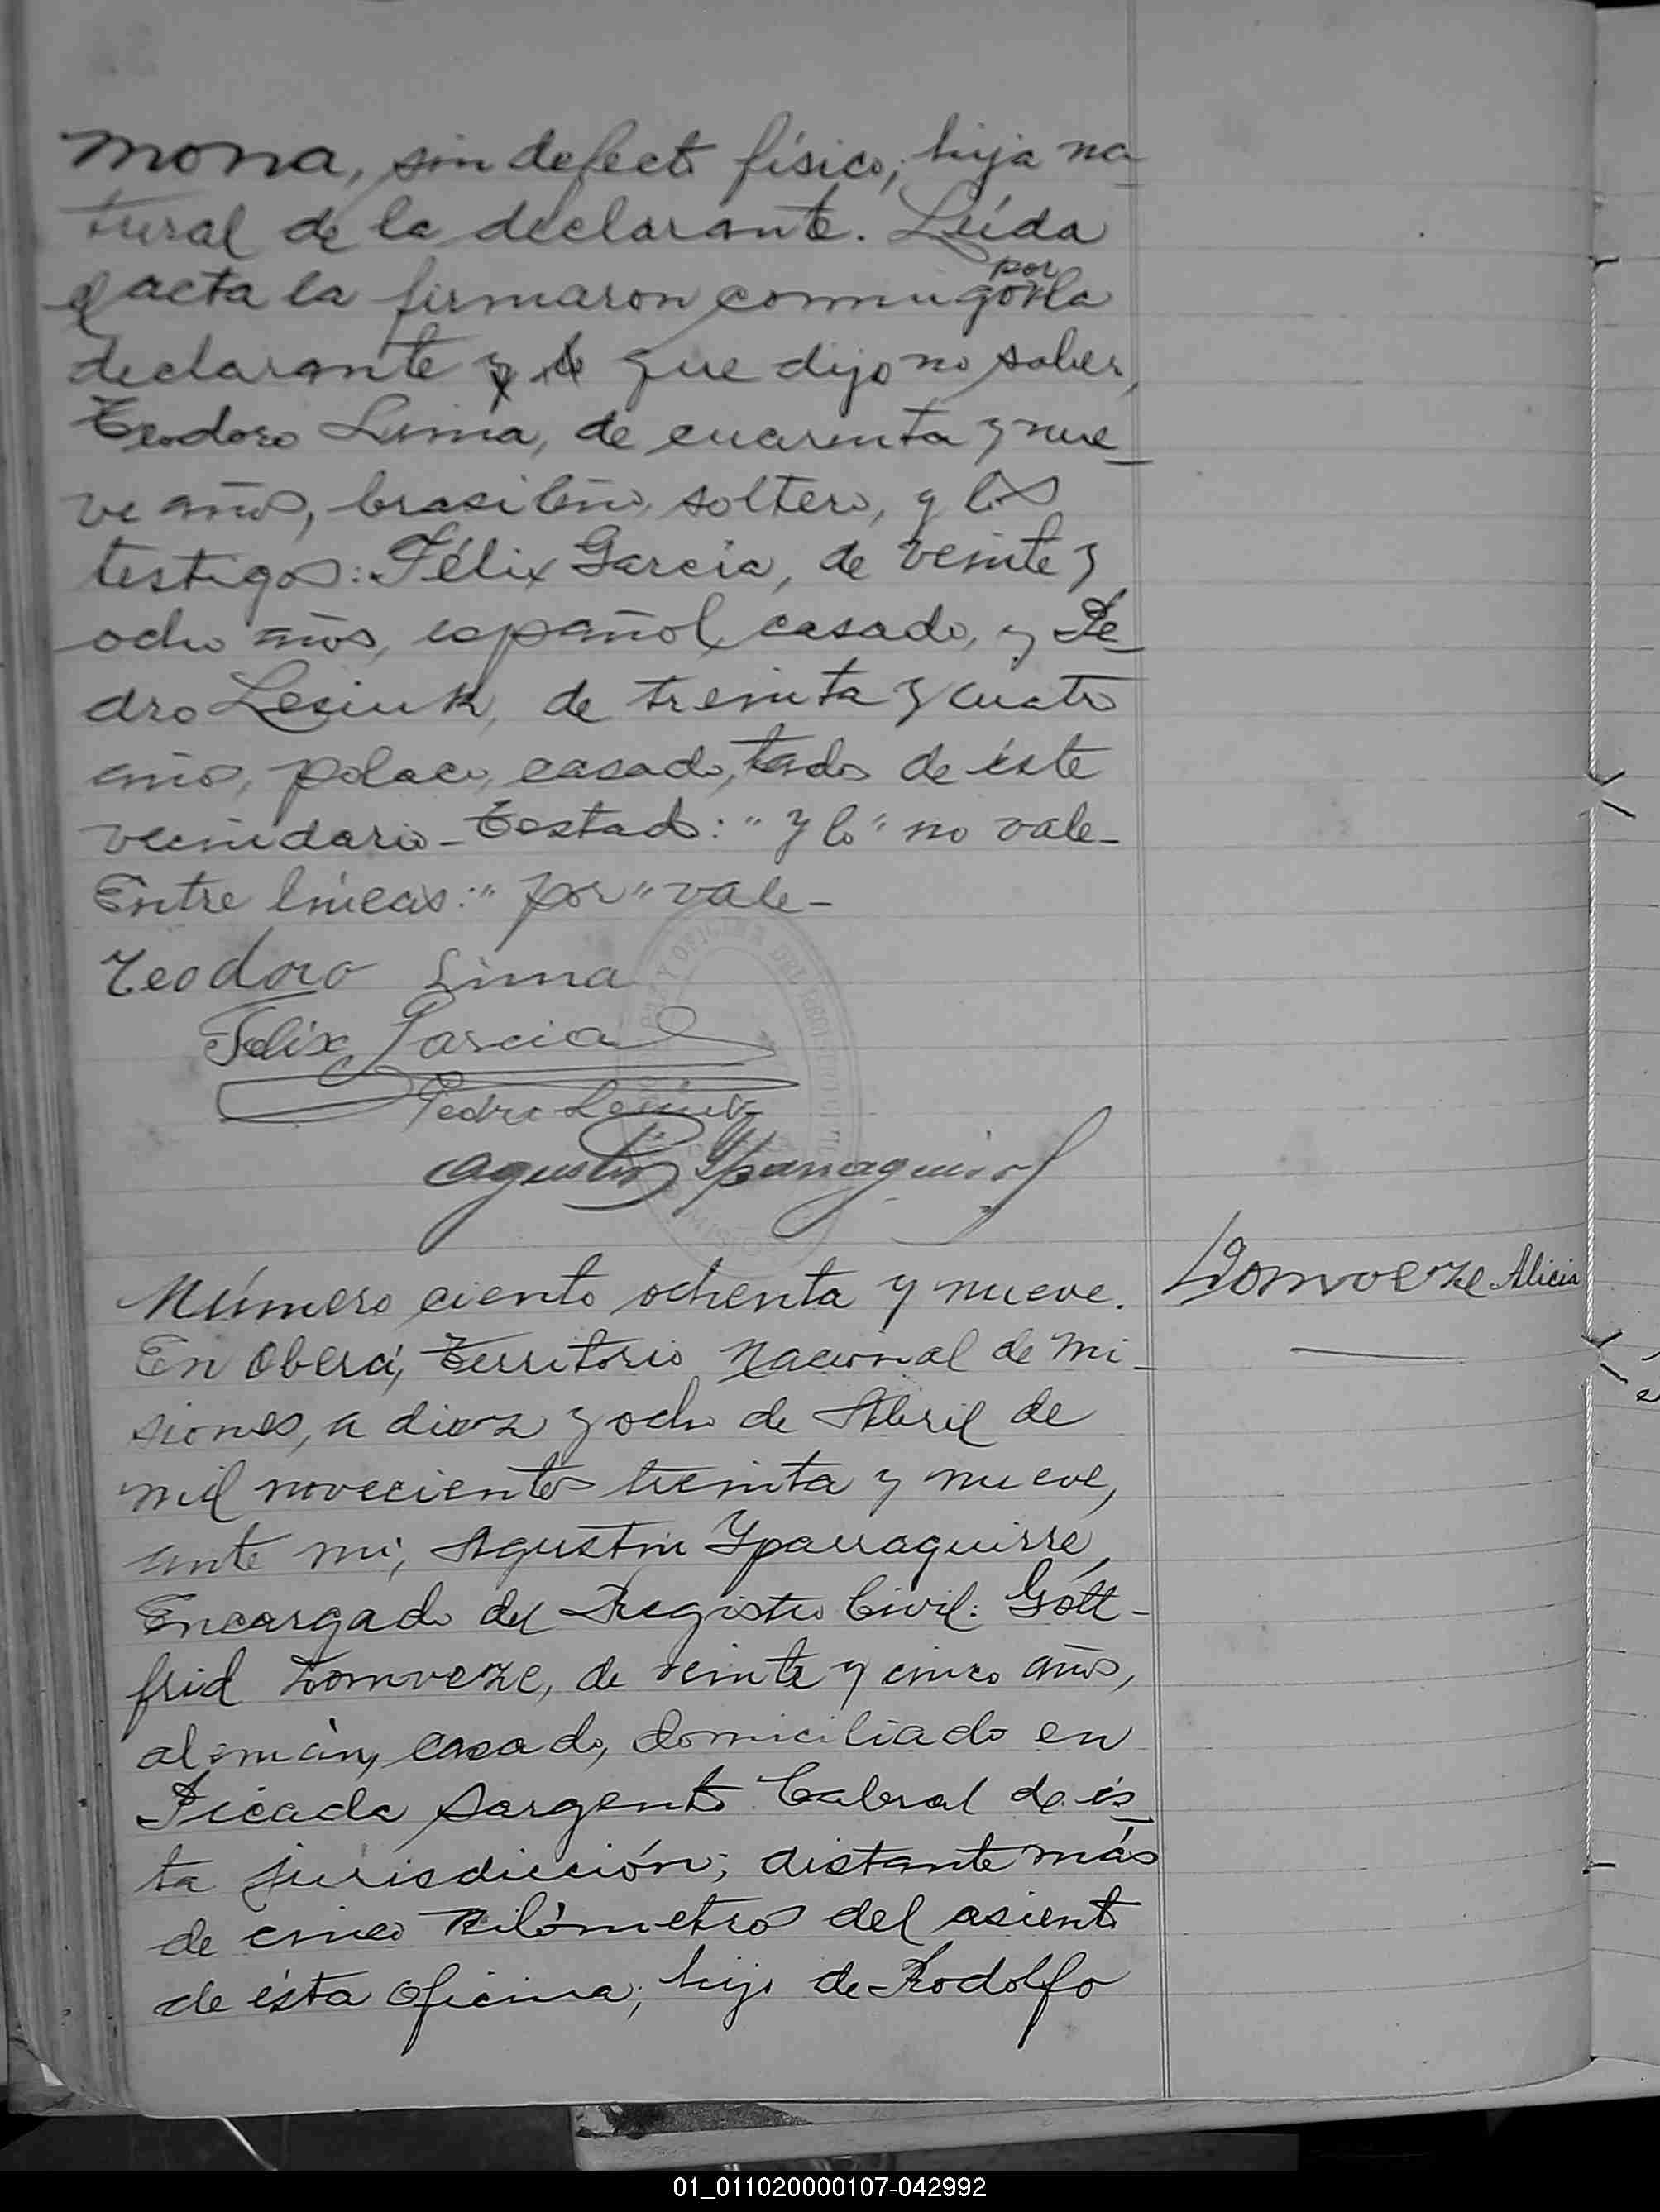 mona, sin defecto físico, hija na-
tural de la declarante. Leída
el acta la firmaron conmigo por la
declarante y lo que dijo no saber,
Teodoro Lima, de cuarenta y nue-
ve años, brasileño, soltero, y los
testigos: Félix García, de veinte y
ocho años, español, casado, y Pe-
dro Lesiuk, de treinta y cuatro
años, polaco, casado, todos de éste
vecindario - Testado: "y lo" no vale -
Entre líneas: "por" vale -
Teodoro Lima
Felix Garcia
Pedro Lesiuk
Agustin Yparraguirre
Número ciento ochenta y nueve.
Alicia
En Oberá, Territorio Nacional de Mi-
siones, a diez y ocho de Abril de
mil novecientos treinta y nueve,
ante mi, Agustín Yparraguirre,
Encargado del Registro Civil: Gótt-
frid, de veinte y cinco años,
alemán, casado, domiciliado en
Picada Sargento Cabral de és-
ta jurisdicción; distante más
de cinco kilómetros del asiento
de ésta Oficina; hijo de Rodolfo
01_011020000107-042992